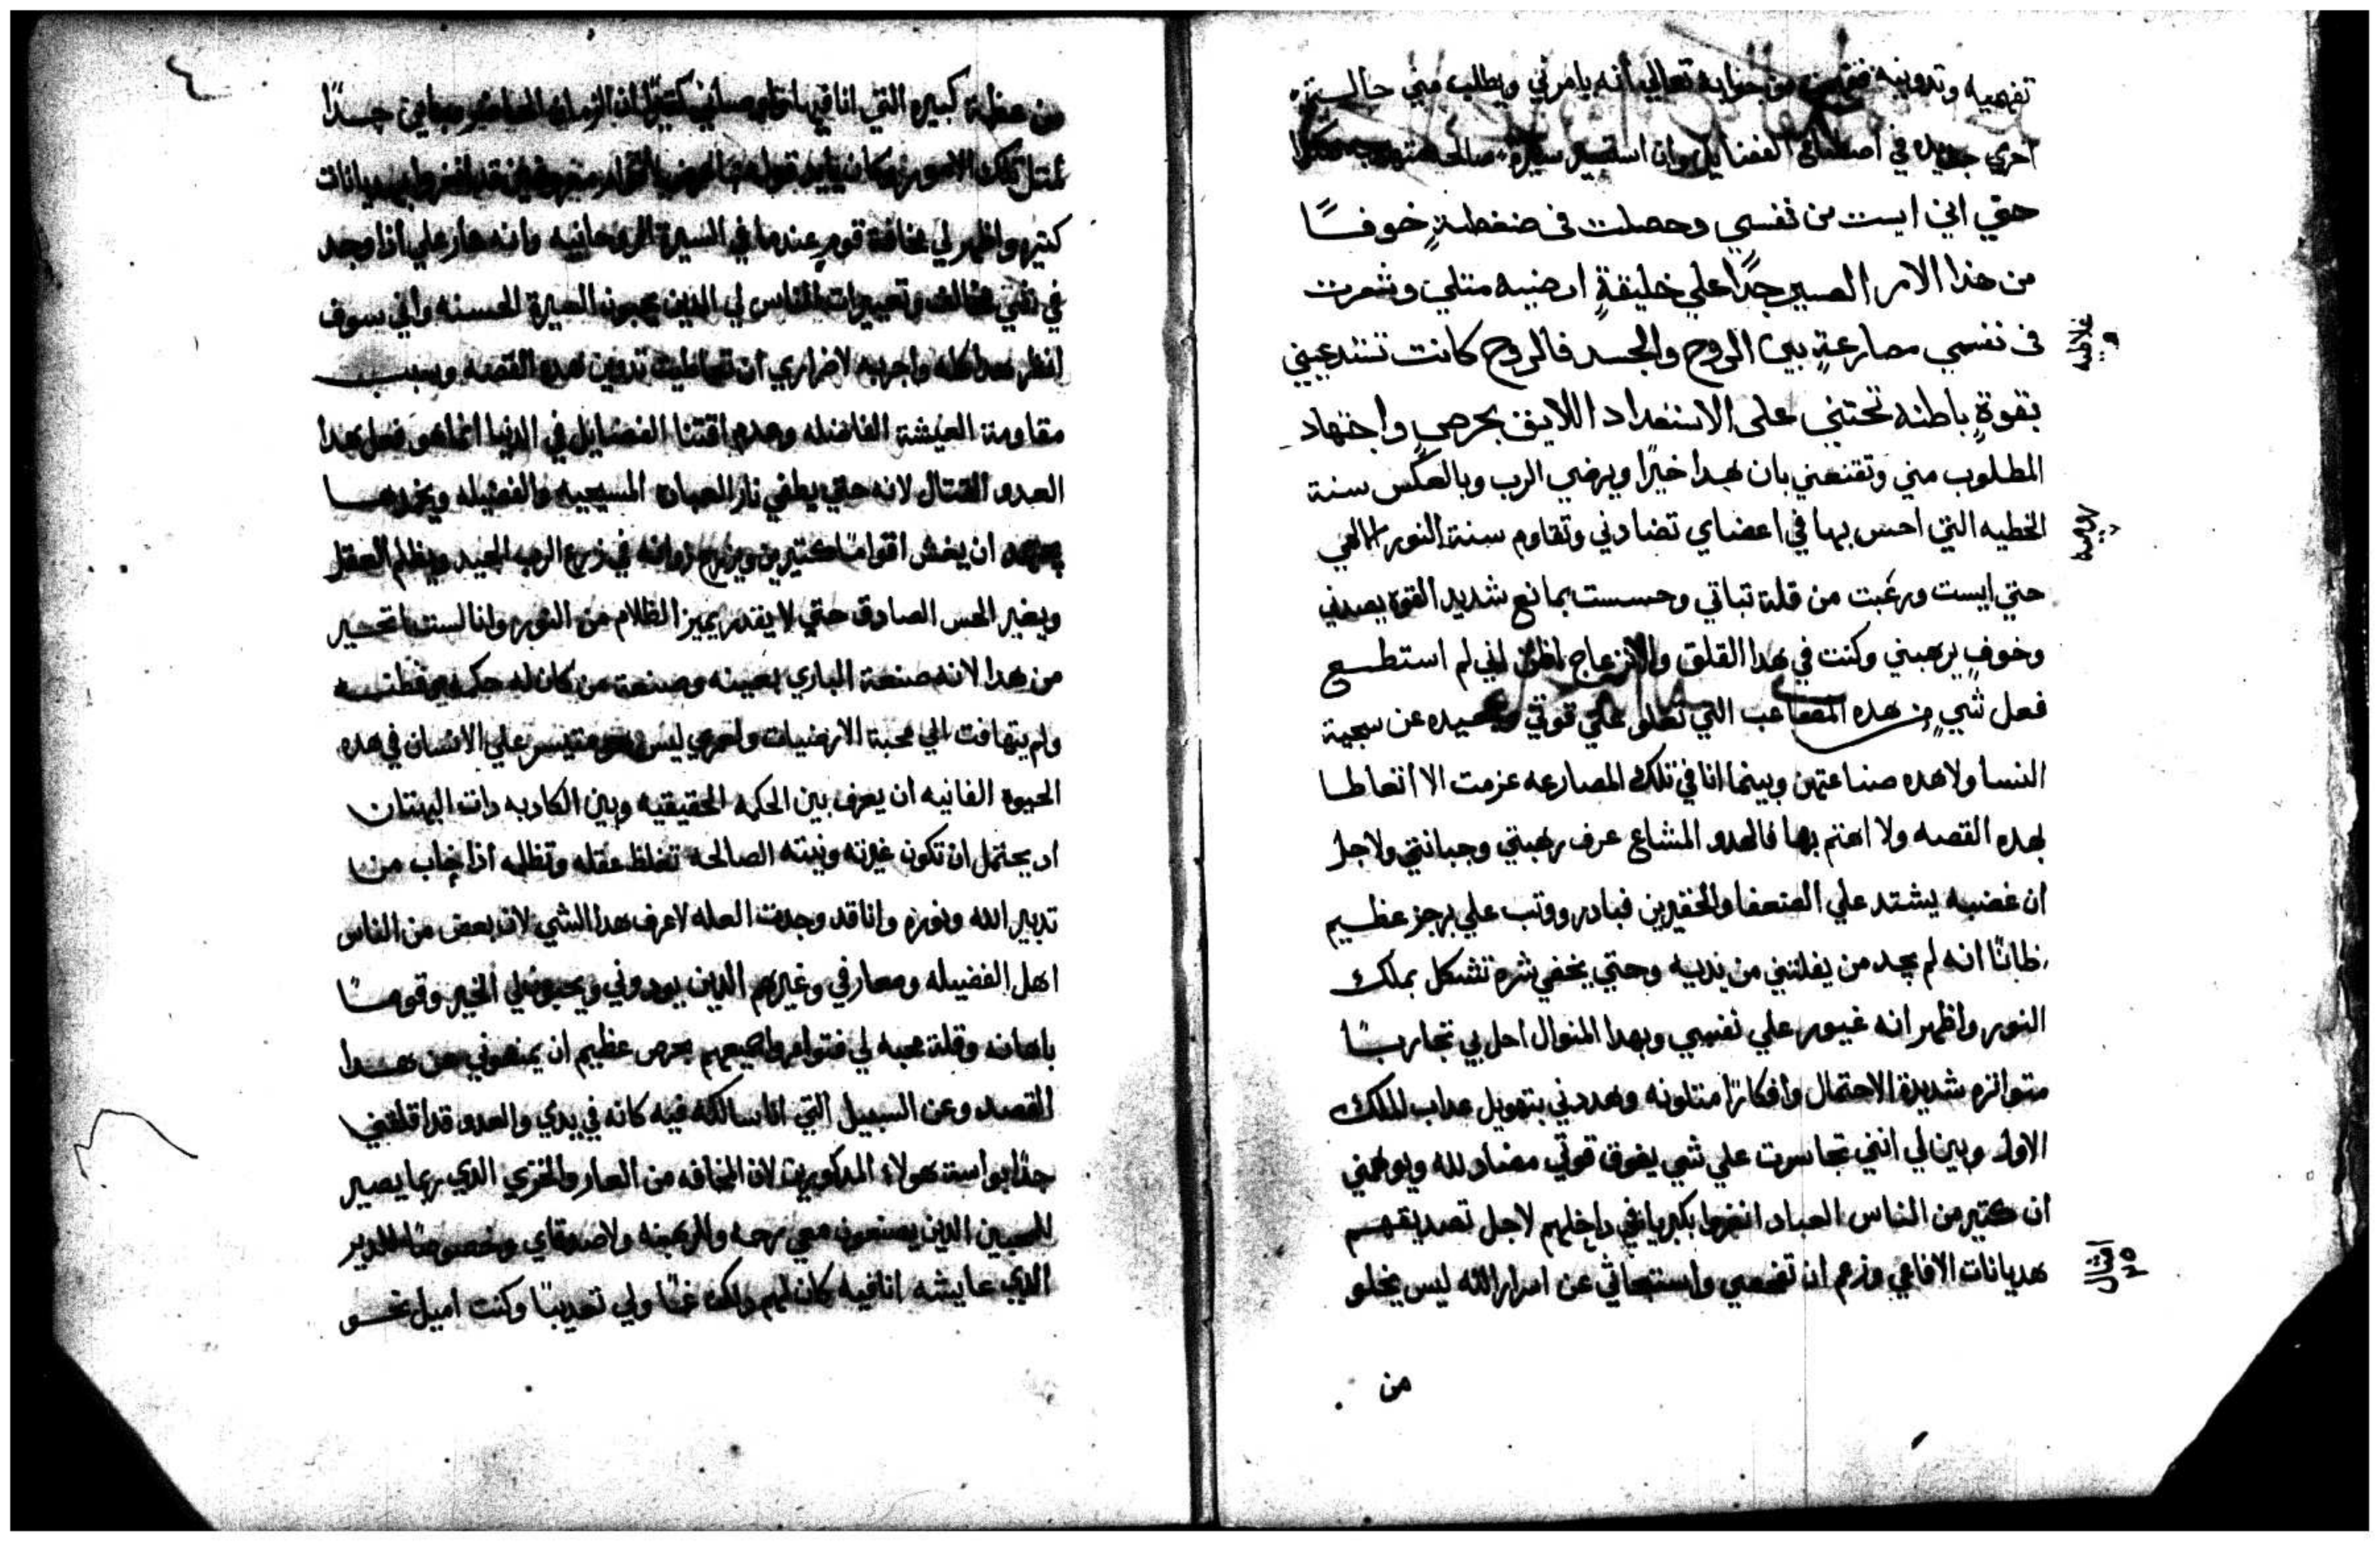 تفهميه وتدوينه من جوابه تعالي انه يامرني ويطلب مني حالستي
اخري جديده في اصطناع الفضايل وان استسير سيرة صالحه
حتي اني ايست من نفسي وحصلت في ضغطةٍ خوفًا
من هذا الامر العسير جدًا علي خليقةٍ ارضيه متلي وشعرت
في نفسي مصارعةٍ بين الروح والجسد فالروح كانت تستدعيني
غلاطيه
و
بقوةٍ باطنه تحتني على الاستعداد اللايق بحرصٍ واجتهاد
المطلوب مني وتقنعني بان بهدا خيرًا ويرضي الرب وبالعكس سنة
الخطيه التي احس بها في اعضاي تضادني وتقاوم سنة النور الالهي
روميه
حتي ايست ورعبت من قلة تباتي وحسست بمانع شديد القوة يصدني
وخوفٍ يرهبني وكنت في هدا القلق والانزعاج اظن اني لم استطيع
فعل شيٍ من هده المصاعب التي تعلو علي قوتي وبعيده عن سجية
النسا ولا هده صناعتهن وبينما انا في تلك المصارعه عزمت الا اتعاطا
بهده القصه ولا اهتم بها فالعدو المشاع عرف رهبتي وجبانتي ولاجل
ان غضبه يشتد علي الضعفا والحقيرين فبادر ووتب علي برجز عظيم
ظانًا انه لم يجد من يفلتني من يديه وحتي يخفي شره تشكل بملك
النور واظهر انه غيور علي نفسي وبهدا المنوال احل بي تجاربًا
متواتره شديدة الاحتمال وافكارًا متلونه وهددني بتهويل عداب للملك
الاول وبين لي انني تجاسرت علي شي يفوق قوتي مضاد لله ويوهمني
ان كتير من الناس العباد انغروا بكبريا في داخلهم لاجل تصديقهم
هديانات الافاعي وزعم ان تفحصي واستبحاثي عن اسرار الله ليس يخلو
امتال
٢٥
من
من عظمة كبيره التي انا فيها
لمتل تلك الامور وكان يايد قوله
كتيره واظهر لي مخافة قوم عندما في السيرة الروحانيه وانه عار علي ادا وجد
في نفي مخالف وتعييرات الناس لي الدين يحبون السيرة الحسنه واني سوف
انظر هدا كله واجربه لاضراري ان تعاطيت تدوين هده القصه وبسبب
مقاومة العيشة الفاضله وعدم اقتنا الفضايل في الدنيا انما هو فعل هدا
العدو القتال لانه حتي يطفي نار العباده المسيحيه والفضيله ويخمدها
يجتهد ان يغش اقوامًا كتيرين ويزرع زوانه في زرع الرب الجيد ويظلم العقل
ويغير الحس الصادق حتي لا يقدر يميز الظلام من النور وانا لست اتحير
من هدا لانه صنعة الباري بعينه وصنعة من كان له حكمه وفطنه
ولم يتهافت الي محبة الارضيات ولعمري ليس هو متيسر علي الانسان في هده
الحيوة الفانيه ان يعرف بين الحكمه الحقيقيه وبين الكادبه دات البهتان
اد يحتمل ان تكون غيرته ونيته الصالحه تغلظ عقله وتظلمه ادا خاب من
تدبير الله ونوره وانا قد وجدت العله لاعرف هدا الشي لان بعض من الناس
اهل الفضيله ومعارفي وغيرهم الدين يودوني ويحبون لي الخير وقومًا
باهانه وقلة محبه لي فتوامروا جميعهم بحرص عظيم ان يمنعوني من هدا
القصد وعن السبيل التي انا سالكه فيه كانه في يدي والعدو قد اقلقني
جدًا بواسته هولاء المدكورين لان المخافه من العار والخزي الدي ربما يصير
للمحبين الدين يصنعون معي رحمه والرهبنه ولاصدقاي وخصوصًا للدير
الدي عايشه انا فيه كان لهم دلك غمًا ولي تعديبًا وكنت اميل نحو